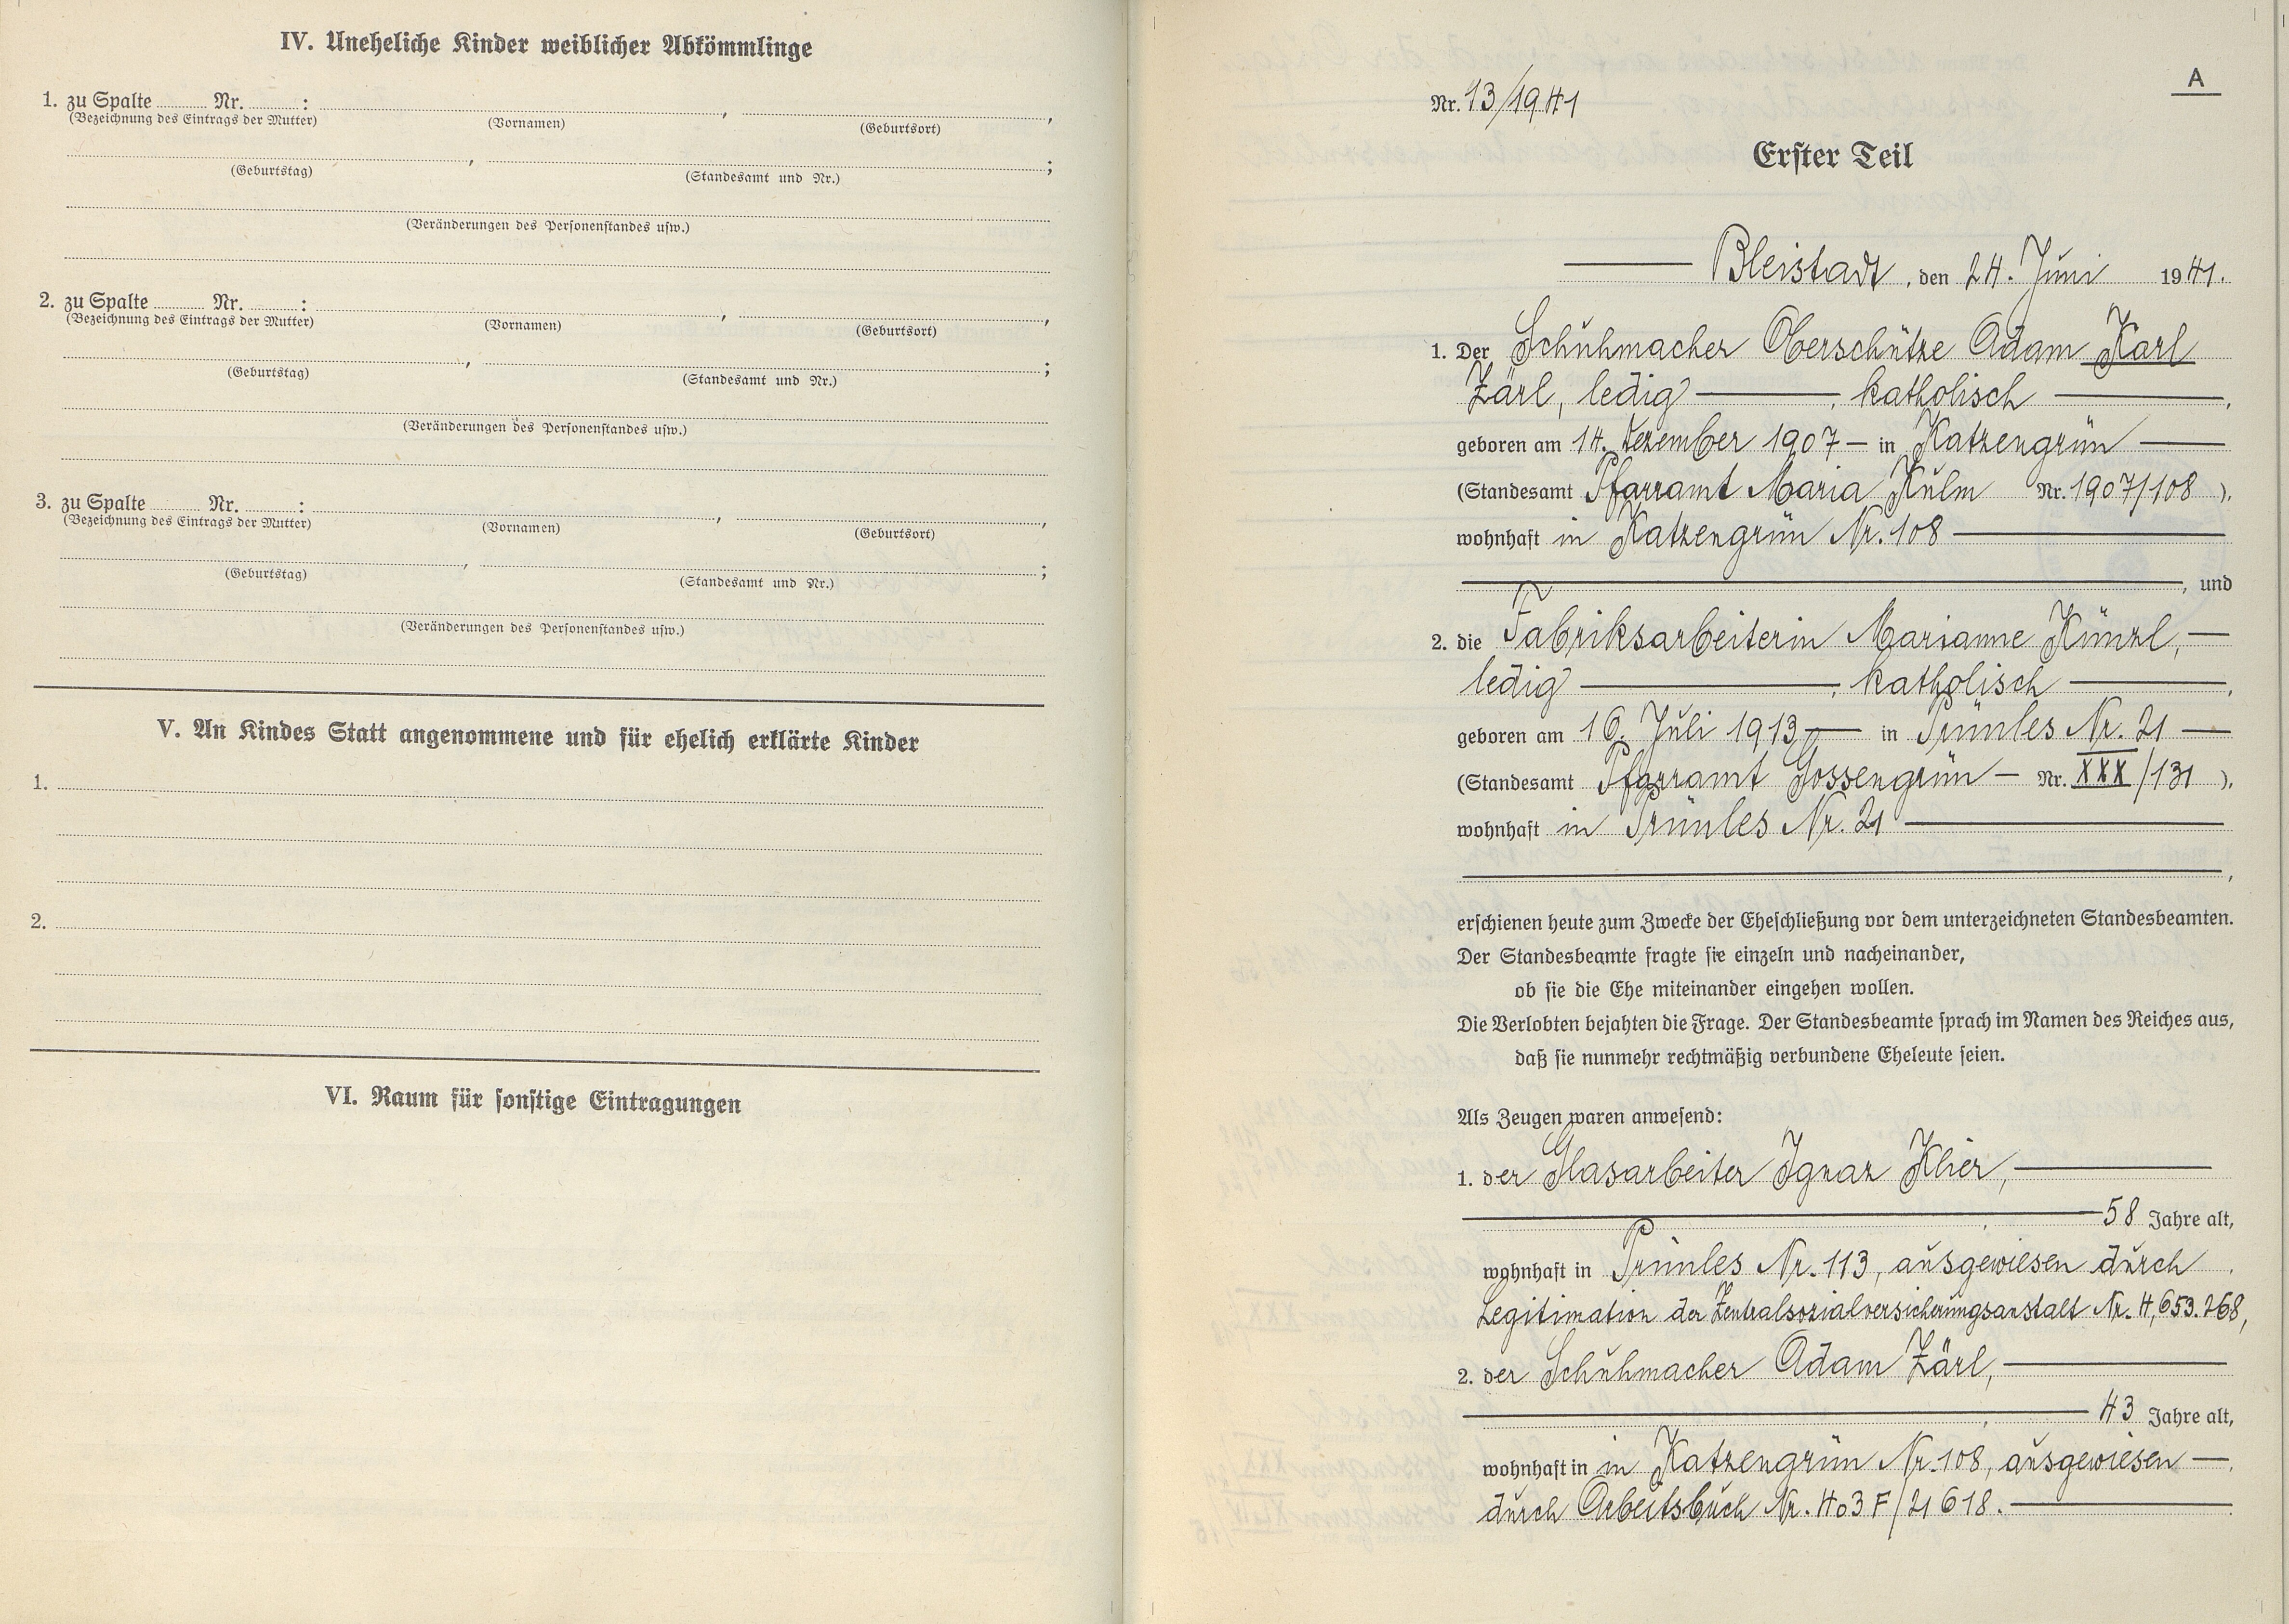 IV. Uneheliche Kinder weiblicher Abkömmlinge
1. zu Spalte ........ Nr. ........ : ........ , ........ ,
(Bezeichnung des Eintrags der Mutter) (Vornamen) (Geburtsort)
........ , ........ ;
(Geburtstag) (Standesamt und Nr.)
(Veränderungen des Personenstandes usw.)
2. zu Spalte ........ Nr. ........ : ........ , ........ ,
(Bezeichnung des Eintrags der Mutter) (Vornamen) (Geburtsort)
........ , ........ ;
(Geburtstag) (Standesamt und Nr.)
(Veränderungen des Personenstandes usw.)
3. zu Spalte ........ Nr. ........ : ........ , ........ ,
(Bezeichnung des Eintrags der Mutter) (Vornamen) (Geburtsort)
........ , ........ ;
(Geburtstag) (Standesamt und Nr.)
(Veränderungen des Personenstandes usw.)
V. An Kindes Statt angenommene und für ehelich erklärte Kinder
1.
2.
VI. Raum für sonstige Eintragungen
A
Nr. 13/1941
Erster Teil
Bleistadt, den 24. Juni 1941.
1. Der Schuhmacher Oberschütze Adam Karl
Zärl, ledig —, katholisch —,
geboren am 14. Dezember 1907 — in Katzengrün —
(Standesamt Pfarramt Maria Kulm Nr. 1907/108 ),
wohnhaft in Katzengrün Nr. 108 —
—, und
2. die Fabriksarbeiterin Marianne Künzl, —
ledig —, katholisch —,
geboren am 16. Juli 1913 — in Prünles Nr. 21 —
(Standesamt Pfarramt Gossengrün — Nr. XXX/131 ),
wohnhaft in Prünles Nr. 21 —
—,
erschienen heute zum Zwecke der Eheschließung vor dem unterzeichneten Standesbeamten.
Der Standesbeamte fragte sie einzeln und nacheinander,
ob sie die Ehe miteinander eingehen wollen.
Die Verlobten bejahten die Frage. Der Standesbeamte sprach im Namen des Reiches aus,
daß sie nunmehr rechtmäßig verbundene Eheleute seien.
Als Zeugen waren anwesend:
1. der Glasarbeiter Ignaz Klier, —
— 58 Jahre alt,
wohnhaft in Prünles Nr. 113, ausgewiesen durch
Legitimation der Zentralsozialversicherungsanstalt Nr. 4,653.268,
2. der Schuhmacher Adam Zärl, —
— 43 Jahre alt,
wohnhaft in in Katzengrün Nr. 108, ausgewiesen —
durch Arbeitsbuch Nr. 403 F/21618. —